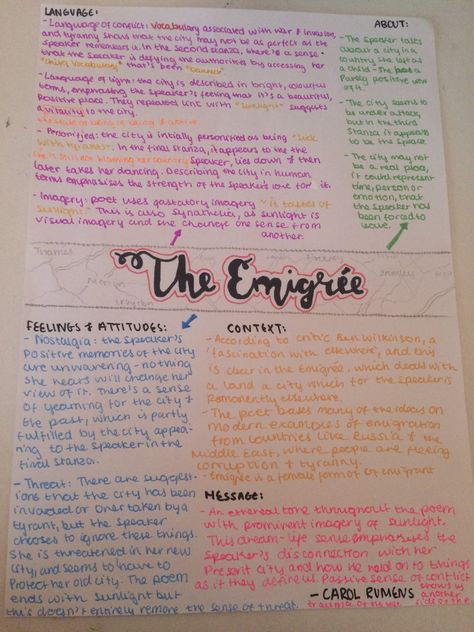 LANGUAGE:
- Language of conflict: Vocabulary associated with war & invasion
and tyranny shows that the city may not be as perfect as the
speaker remembers it. In the second stanza, there's a sense
that the speaker is defying the authorities by accessing her
"child's vocabulary" that's been "banned"
- Language of light: the city is described in bright, colourful
terms, emphasising the speaker's feeling that it's a beautiful,
positive place. They repeated link with "sunlight" suggests
a vitality to the city.
- Personified: the city is initially personified as being "sick
with tyrants". In the final stanza, it appears to the
speaker, lies down & then
later takes her dancing. Describing the city in human
terms emphasises the strength of the speaker's love for it.
- Imagery: poet uses gustatory imagery "it tastes of
sunlight". This is also synathesia, as sunlight is
visual imagery and she change one sense from
another.
ABOUT:
- The speaker talks
about a city in a
country she left as
a child - she has a
purely positive view
of it.
- The city seems
to be under attack,
but in the third
stanza it appears
to be the speaker
- The city may not
be a real place,
it could represent
time, person or
emotion, that
the speaker has
been forced to
leave.
Thames
The Emigrée
FEELINGS & ATTITUDES:
- Nostalgia: the speaker's
positive memories of the city
are unwavering - nothing
she hears will change her
view of it. There's a sense
of yearning for the city &
the past, which is partly
fulfilled by the city appea-
ing to the speaker in the
final stanza.
- Threat: There are suggest-
ions that the city has been
invaded or overtaken by a
tyrant, but the speaker
chooses to ignore these things.
She is threatened in her new
city, and seems to have to
protect her old city. The poem
ends with sunlight but
this doesn't entirely remove the sense of threat.
CONTEXT:
- According to critic Ben Wilkinson, a
'fascination with elsewhere', and this
is clear in the Emigrée, which deals with
a land & city which for the speaker is
permanently elsewhere.
- The poet bases many of the ideas on
modern examples of emigration
from countries like Russia & the
Middle East, where people are fleeing
corruption & tyranny.
- Emigree is a female form of emigrant
MESSAGE:
- An ethereal tone throughout the poem
with prominent imagery of sunlight.
This dream-like sense emphasises the
speaker's disconnection with her
present city and how he held on to things
as it they define us. Passive sense of conflict
shows us
another side
of the
trauma of
- CAROL RUMENS